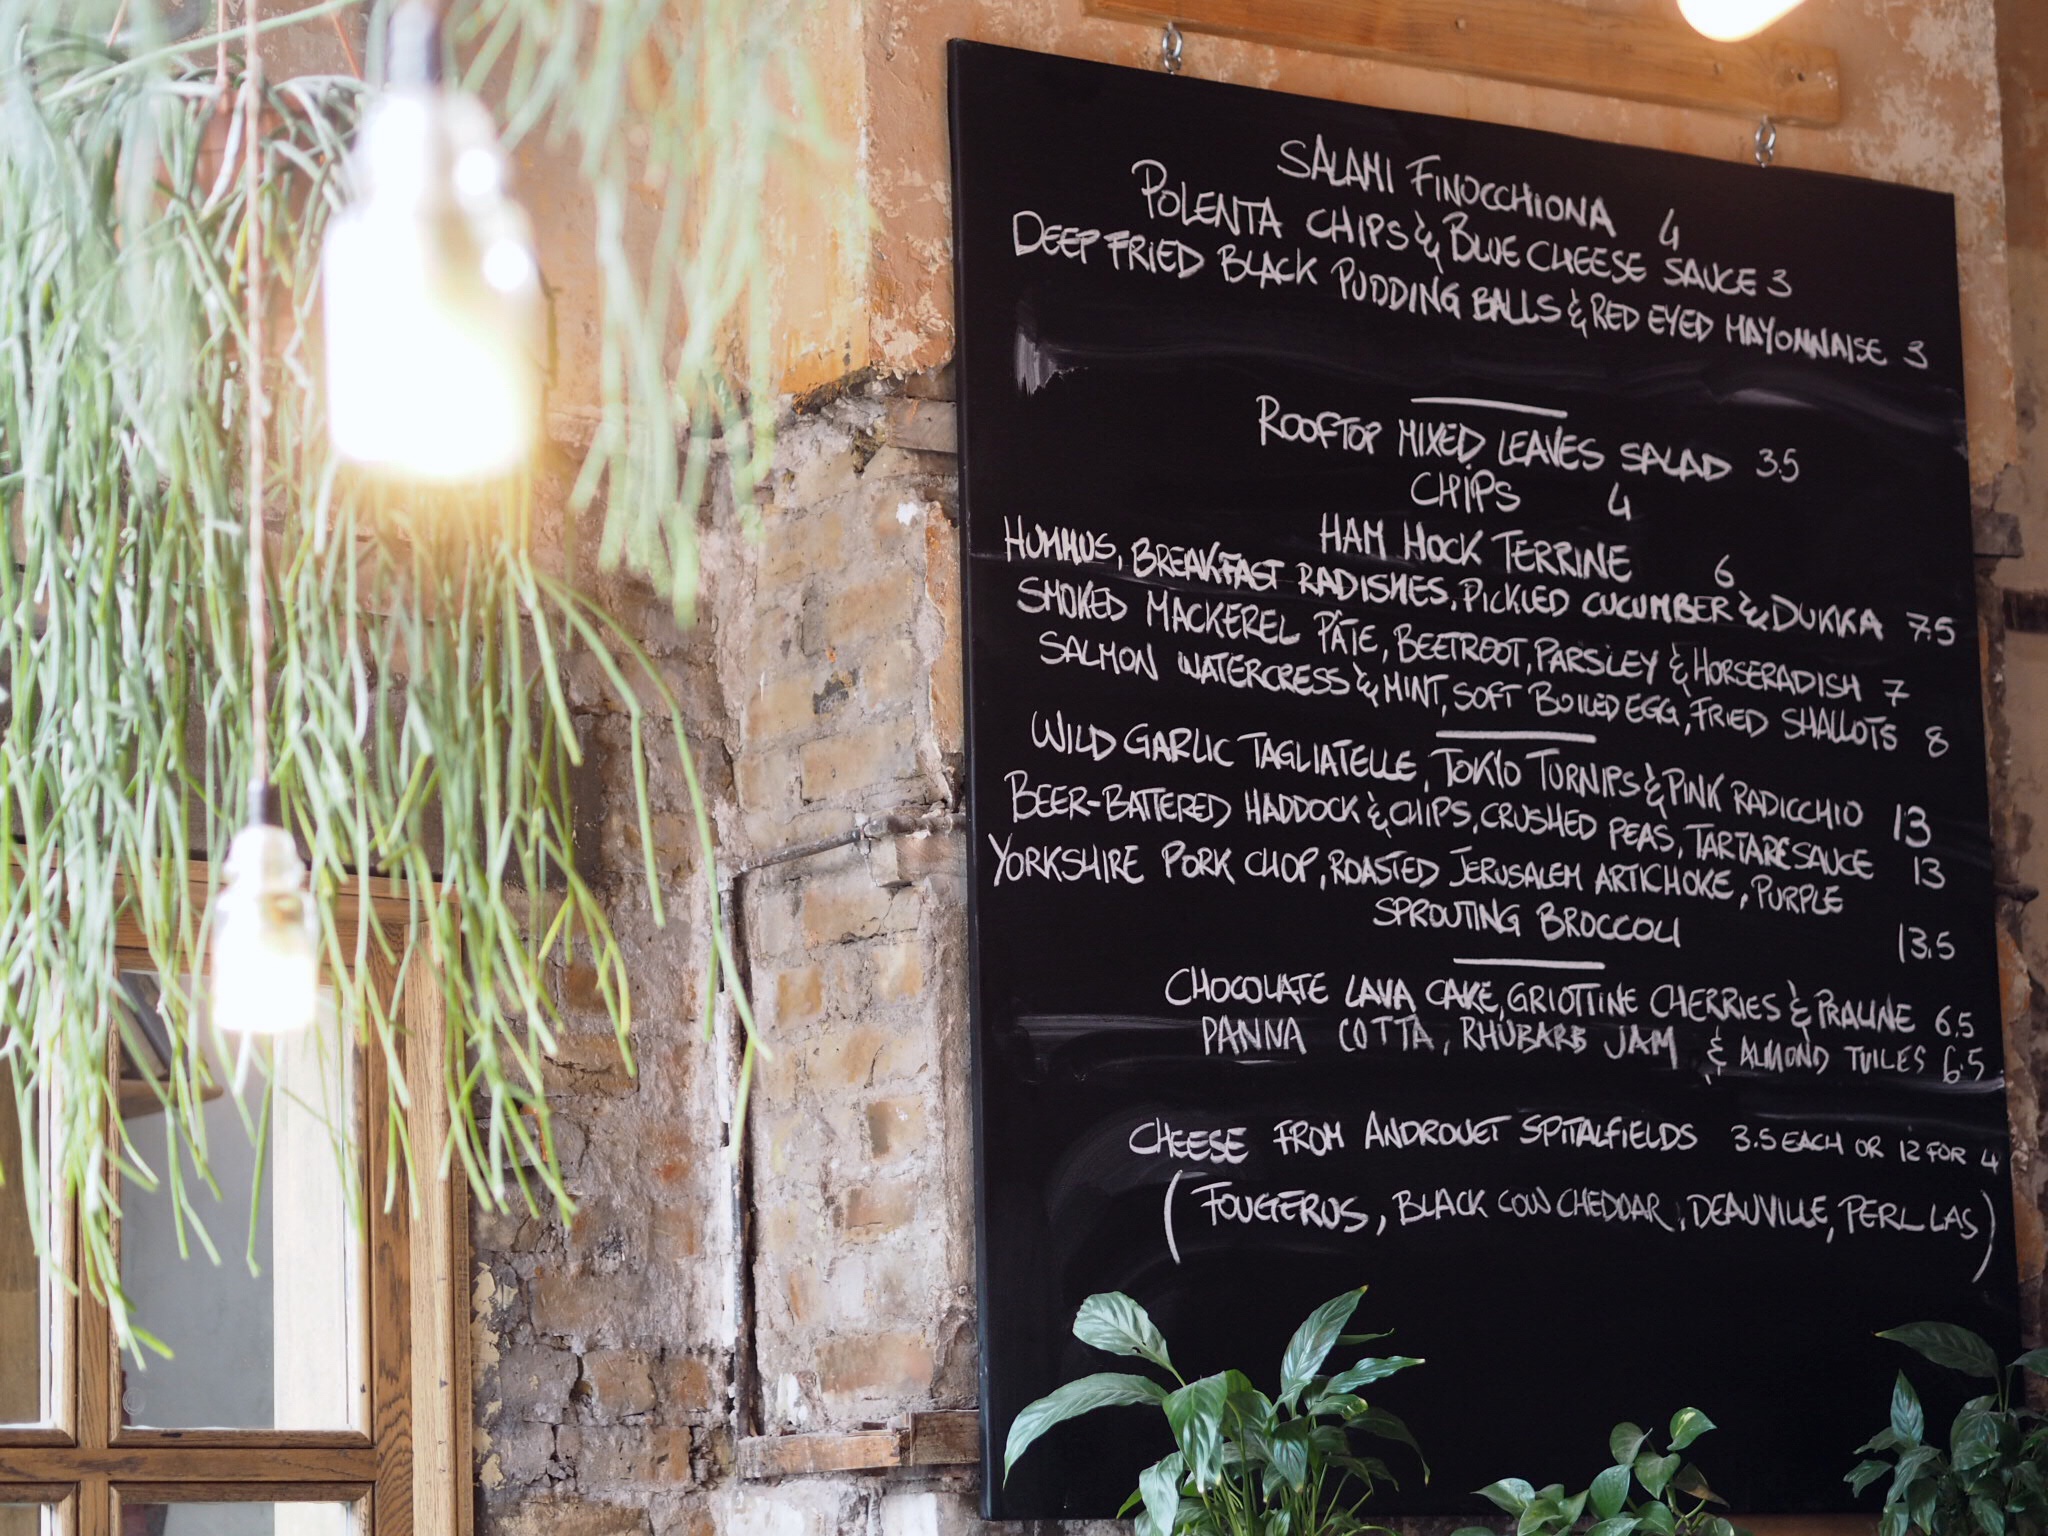 SALAMI FINOCCHIONA 4
POLENTA CHIPS & BLUE CHEESE SAUCE 3
DEEP FRIED BLACK PUDDING BALLS & RED EYED MAYONNAISE 3
ROOFTOP MIXED LEAVES SALAD 3.5
CHIPS 4
HAM HOCK TERRINE 6
HUMMUS, BREAKFAST RADISHES, PICKLED CUCUMBER & DUKKA 7.5
SMOKED MACKEREL PÂTE, BEETROOT, PARSLEY & HORSERADISH 7
SALMON WATERCRESS & MINT, SOFT BOILED EGG, FRIED SHALLOTS 8
WILD GARLIC TAGLIATELLE, TOKYO TURNIPS & PINK RADICCHIO 13
BEER-BATTERED HADDOCK & CHIPS, CRUSHED PEAS, TARTARE SAUCE 13
YORKSHIRE PORK CHOP, ROASTED JERUSALEM ARTICHOKE, PURPLE
SPROUTING BROCCOLI 13.5
CHOCOLATE LAVA CAKE, GRIOTTINE CHERRIES & PRALINE 6.5
PANNA COTTA, RHUBARB JAM & ALMOND TUILES 6.5
CHEESE FROM ANDROUET SPITALFIELDS 3.5 EACH OR 12 FOR 4
(FOUGERUS, BLACK COW CHEDDAR, DEAUVILLE, PERL LAS)